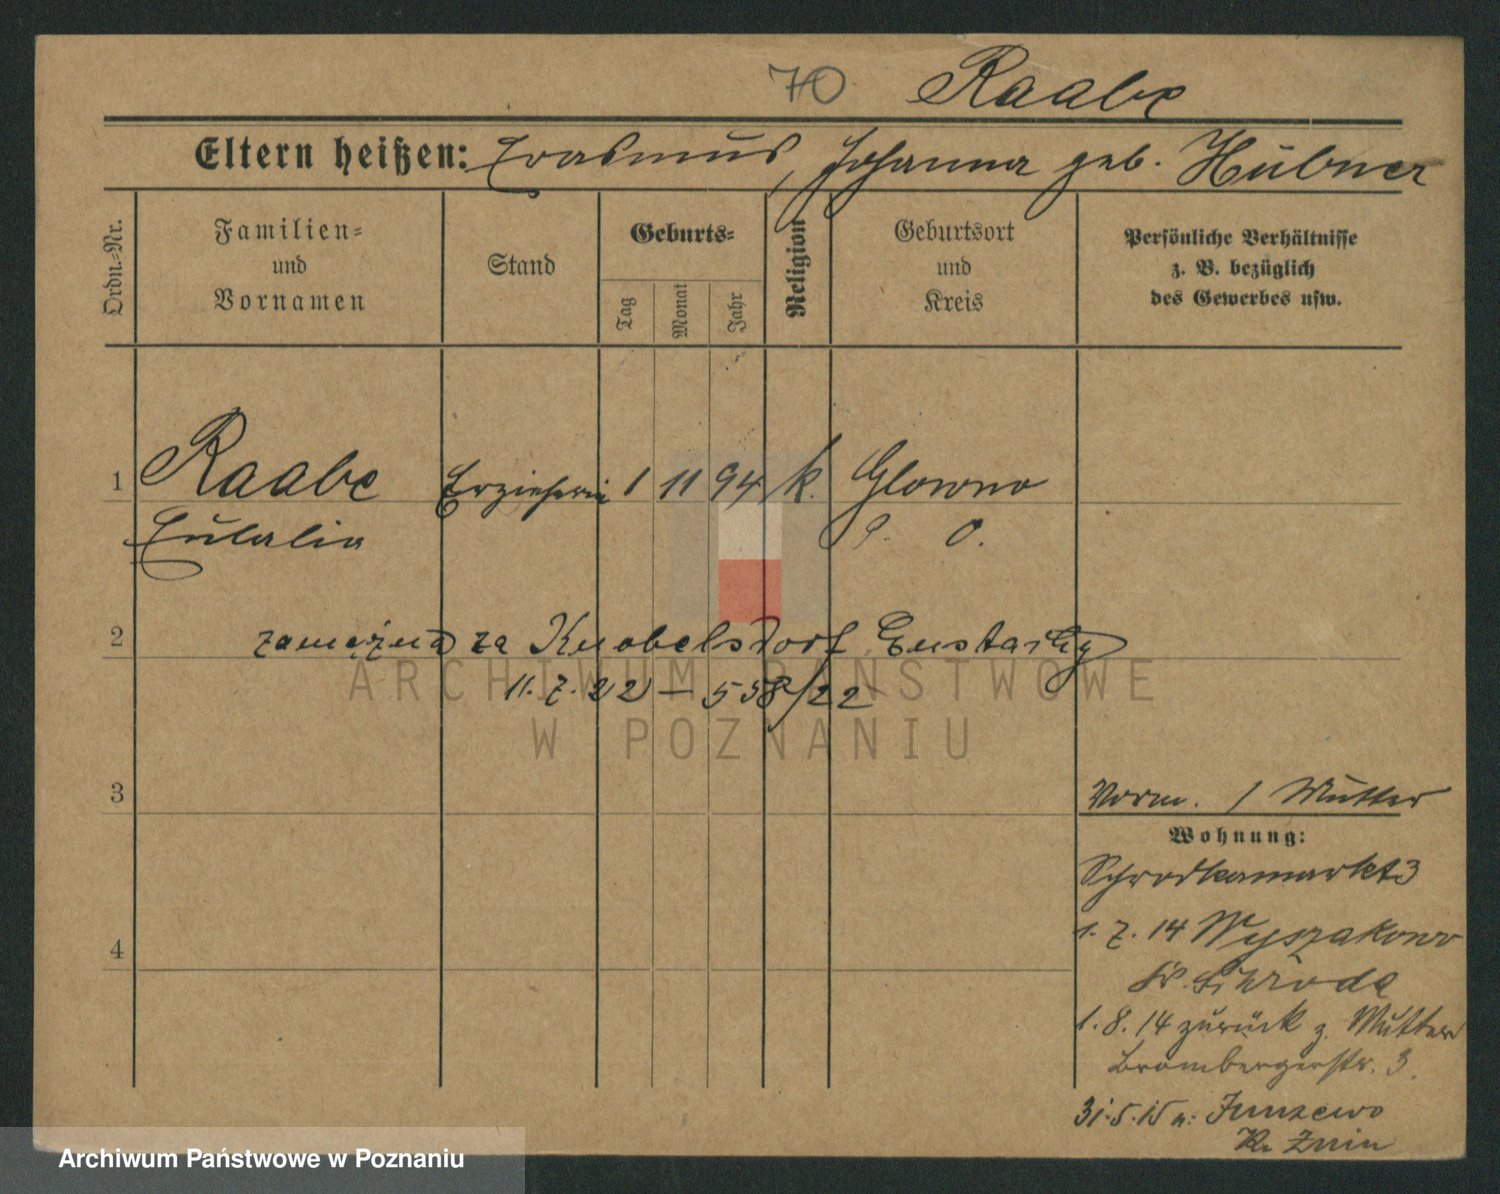 70 Raabe
Eltern heißen: Erasmus, Johanna geb. Hübner
Ordn.-Nr.
Familien-
und
Vornamen
Stand
Geburts-
Tag
Monat
Jahr
Religion
Geburtsort
und
Kreis
Persönliche Verhältnisse
z. B. bezüglich
des Gewerbes usw.
1 Raabe Erzieherin 1 11 94 k. Glowno
Eulalia P. O.
2 zamężna za Knobelsdorf Eustachy
11.7.22 — 558/22
ARCHIWUM PAŃSTWOWE
W POZNANIU
3
Vorm. / Mutter
Wohnung:
Schrodkamarkt 3
4
1. 7. 14 Wyszakowo
Kr. Schroda
1. 8. 14 zurück z. Mutter
Brombergerstr. 3.
31.5.15 n. Junzewo
Kr. Znin
Archiwum Państwowe w Poznaniu